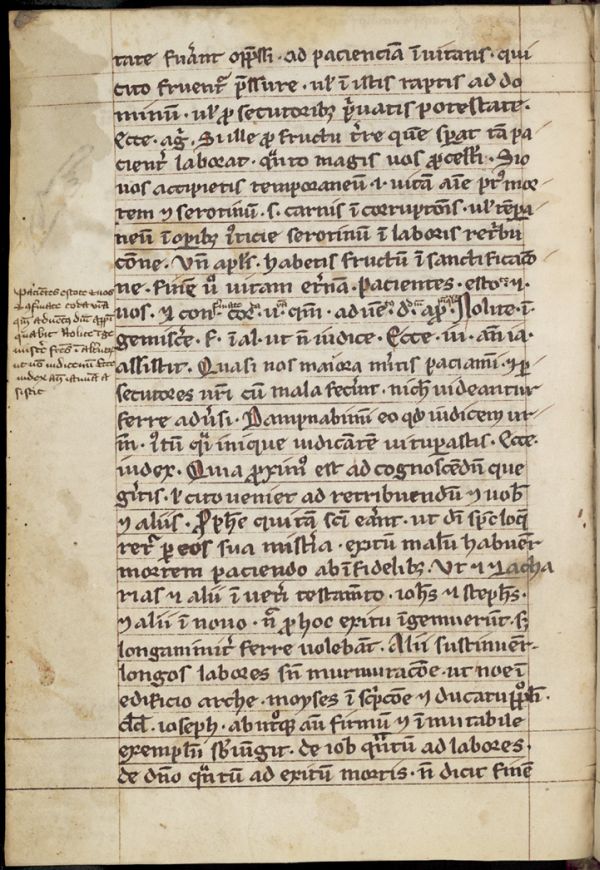 tate fuerant opp̄ssi · ad pacienciā īuitans · qui
cito fruent᷑ p̄ssure · ul̓ ī istis raptis ad do
minū · ul̓ ꝓsecutoribꝫ p̄uatis potestate ·
Ecce · ag̓ · Si ille ꝓ fructu t̓re quē sp̄at tā pa
cient̓ laborat · q̄nto magis uos ꝓcelsi · Sic
uos accipietis temporaneū · i · uitam aīe p᷑ mor
tem ⁊ serotinū · s · carnis īcorruptōnē · ul̓ tēpa
neū ī opibꝫ iusticie serotinū ī laboris ret̓bu
cōne · Vn̄ apl̓s · habetis fructū ī sanctificacō
ne · finē u̓o uitam et̓nam · pacientes · estote ⁊
uos · ⁊ conf̓ · cor · u · qm̄ · aduē · d · ap̄ · Nolite · ī
gemisc̓e · f · ī al · ut n̄ iudice · Ecce · iu · an̄ ia ·
assistit · Quasi nos maiora m̓itis paciam̄ · ⁊ p̱
secutores nr̄i cū mala fec̓int · nich̓ uideantur
ferre adu̓si · Dampnabimī eo qd̓ iudicem ut
īiustū q̓ inique iudicātē uitup̱astis · Ecce ·
iudex · Quia ꝓximꝰ est ad cognoscendū que
g̓itis · ⁊ cito ueniet ad retribuendū ⁊ uob̓
⁊ aliis · Ꝓph̓e qui tā sc̄i erāt · ut dī sp̄c loq̓
ret᷑ p̱ eos sua mist̓ia · exitū malū habuer̄
mortem paciendo ab īfidelibꝫ · Vt ⁊ zacha
rias ⁊ alii ī uet̓i testam̄to · ioh̓s ⁊ steph̓s ·
⁊ alii ī nouo · n̄ ꝓ hoc exitu īgemuerūt · sꝫ
longanimit̓ ferre uolebant · Alii sustinuer̄
longos labores sn̄ murmuracōe · ut noe ī
edificio arche · moyses ī sc̓pcōe ⁊ ducatu ppl̓i ·
dd̄ · ioseph · ab utq᷑ aū firmū ⁊ īmutabile
exemplū sb̓iūgit · de iob q̄ntū ad labores ·
de dn̄o q̄ntū ad exitū mortis · n̄ dicit finē
Pacientes estote ⁊ uos
⁊ ɔfirmate corda ur̄a
qm̄ aduent̓ dn̄i app̄i
quabit Nolite īge
misc̓e fr̄s ī al̓tut̓
ut nō iudicemī Ecce
iudex an̄ ianuā a
sistit